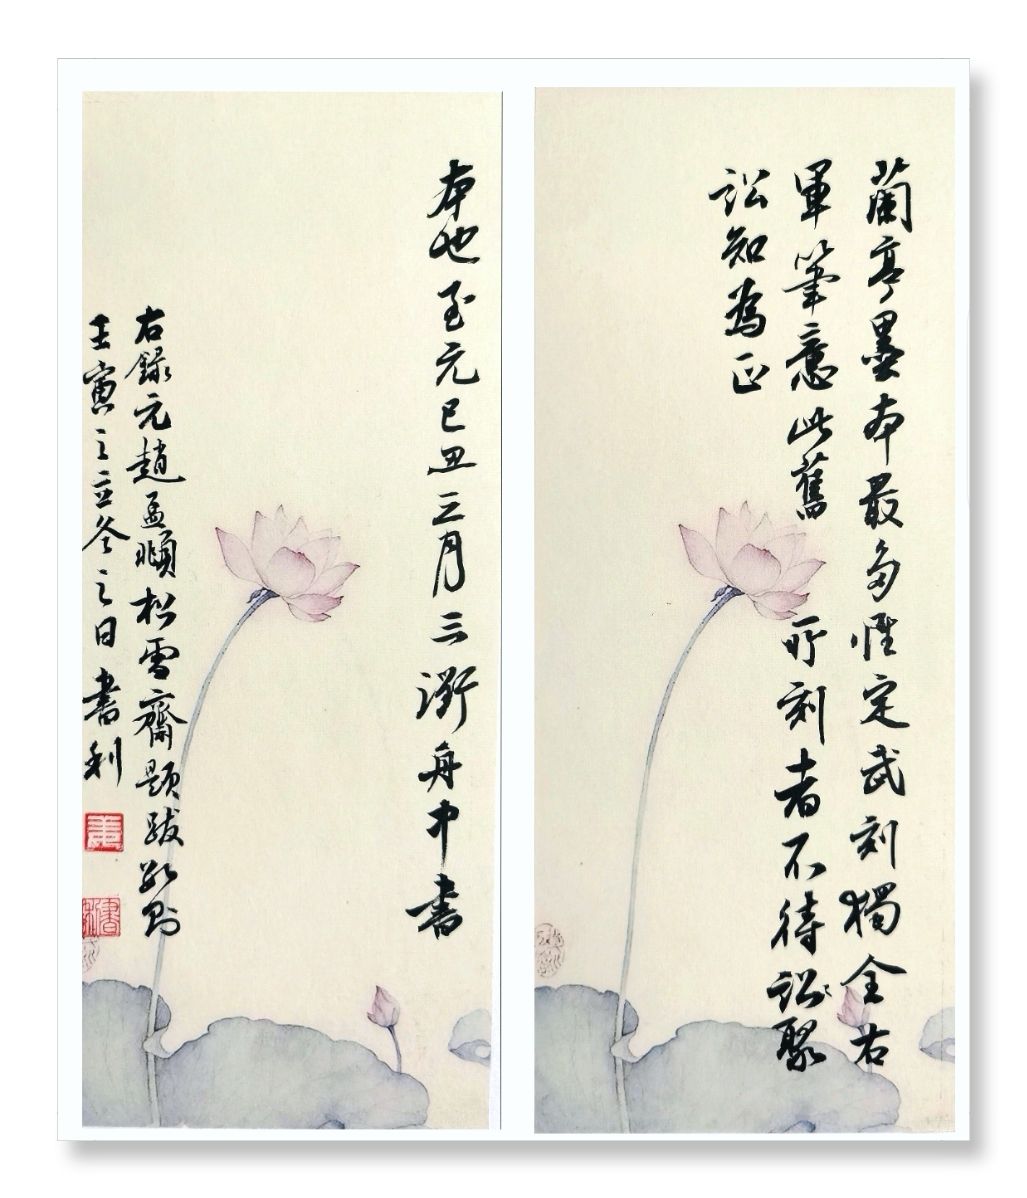 蘭亭墨本最多惟定武刻獨全右
軍筆意此舊所刻者不待聚
訟知為正
本也至元己丑三月三衢舟中書
右錄元趙孟頫松雪齋題跋數則
壬寅之立冬之日書利